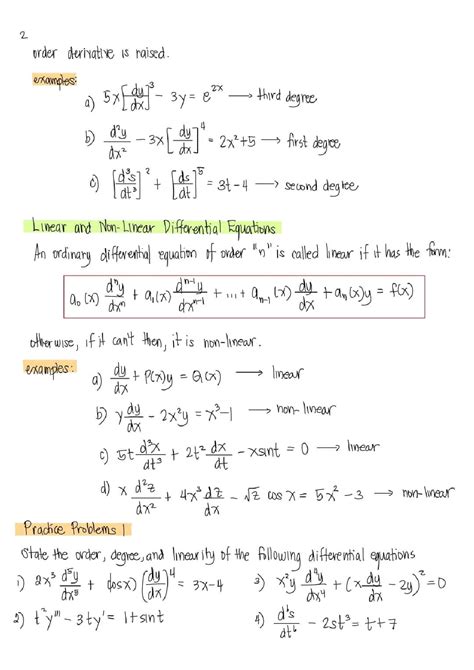 2
order derivative is raised.
examples:
a) 5x[dy/dx]^3 - 3y = e^2x → third degree
b) d²y/dx² - 3x[dy/dx]^4 = 2x²+5 → first degree
c) [d³s/dt³]^2 + [ds/dt]^5 = 3t-4 → second degree
Linear and Non-Linear Differential Equations
An ordinary differential equation of order "n" is called linear if it has the form:
a₀(x) dⁿy/dxⁿ + a₁(x) dⁿ⁻¹y/dxⁿ⁻¹ + ... + aₙ₋₁(x) dy/dx + aₙ(x)y = f(x)
otherwise, if it can't then, it is non-linear.
examples:
a) dy/dx + P(x)y = Q(x) → linear
b) y dy/dx - 2x²y = x³-1 → non-linear
c) 5t d³x/dt³ + 2t² dx/dt - x sint = 0 → linear
d) x d²z/dx² + 4x³ dz/dx - √z cos x = 5x² - 3 → non-linear
Practice Problems 1
State the order, degree, and linearity of the following differential equations
1) 2x³ d⁵y/dx⁵ + (cosx)(dy/dx)^4 = 3x-4
3) x²y d⁴y/dx⁴ + (x dy/dx - 2y)² = 0
2) t²y''' - 3ty' = 1+sint
4) d⁶s/dt⁶ - 2st³ = t+7